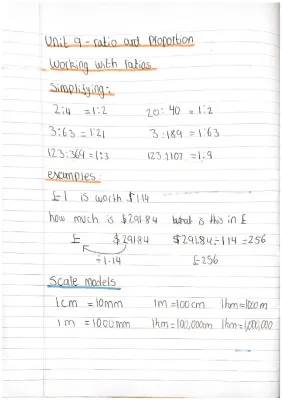 Unit 9 - ratio and proportion
Working with ratios
Simplifying:
2:4 = 1:2 20:40 = 1:2
3:63 = 1:21 3:189 = 1:63
123:369 = 1:3 123:1107 = 1:9
examples:
£1 is worth $1.14
how much is $291.84 what is this in £
£ $291.84 $291.84÷1.14 = 256
÷1.14 £256
Scale models
1cm = 10mm 1m = 100cm 1km = 1000m
1m = 1000mm 1km = 100,000m 1km = 1,000,000